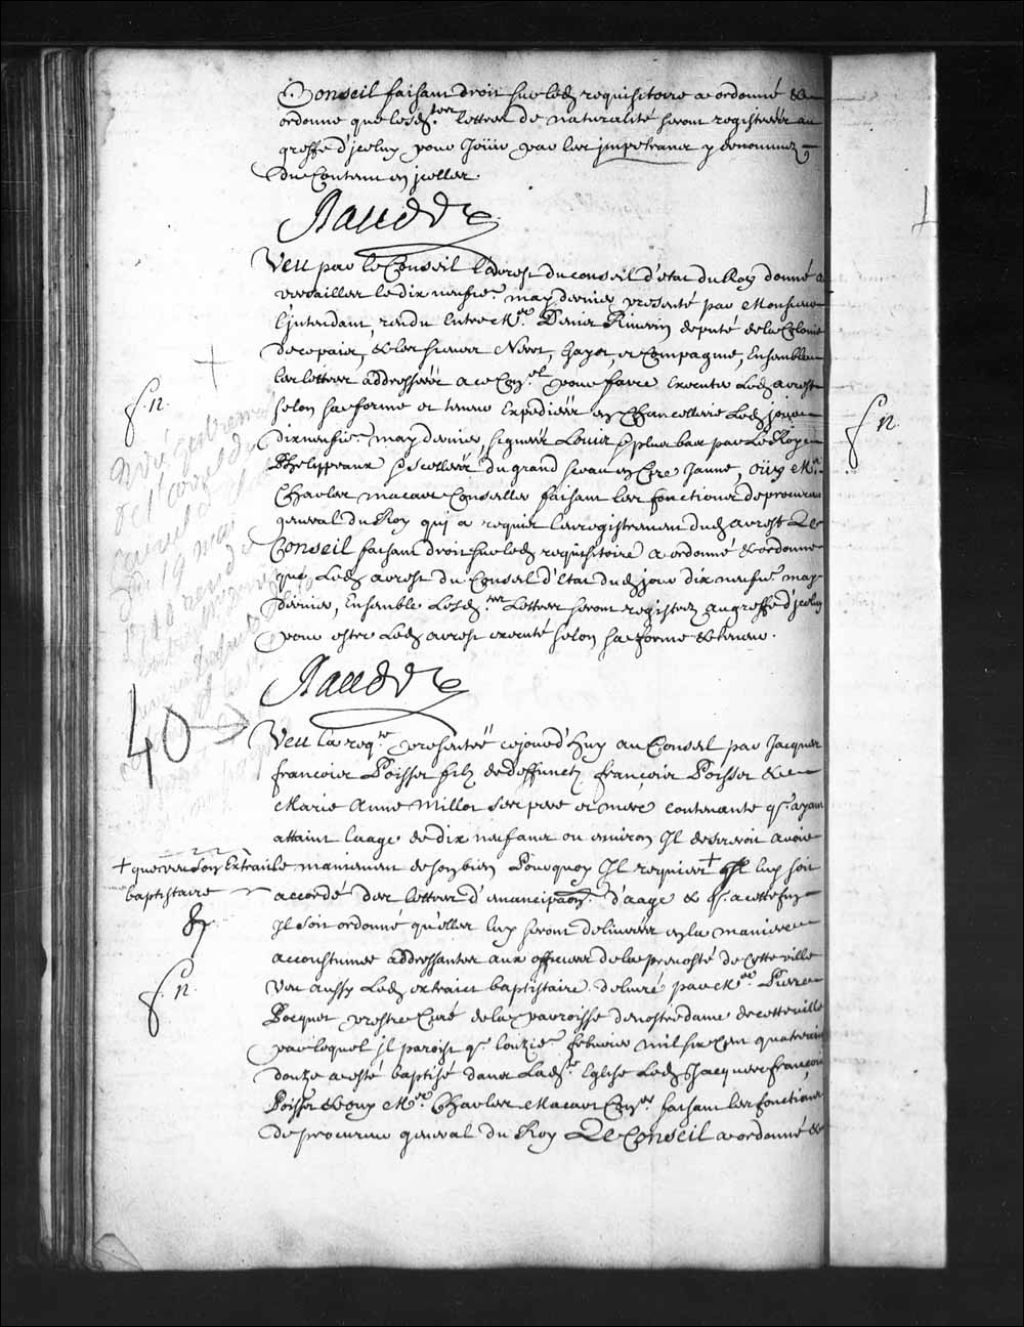 Conseil faisant droit sur led requisitoire a ordonné &
ordonne que lesd. lettres de naturalité seront registrées au
greffe d'jceluy pour Joüir par les jmpetrans y denommez
du Contenu en jcelles.
Raudot
Veu par le Conseil l'arrest du conseil d'etat du Roy donné a
versailles le dix neufie. may dernier presenté par Monsieur
l'jntendant, rendu Entre Me. Denis Riverin deputé de la Colonie
de ce païs, & les sieurs Neret, Gayot, et Compagnie, Ensemble
les lettres addressées a ce Conel. pour faire Executer Led arrest
selon sa forme et teneur Expediées en Chancellerie Led jour
dix neufie. may dernier, signées Louis & plus bas par Le Roy
Phelyppeaux & scellées du grand sceau en Cire Jaune, oüy Me.
Charles Macart Conseiller faisant les fonctions de procureur
general du Roy qui a requis l'enregistrement dud arrest Le
Conseil faisant droit sur led requisitoire a ordonné & ordonne
que Led arrest du Conseil d'Etat dud jour dix neufie. may
dernier, Ensemble Lesd. Lettres seront registrez au greffe d'jceluy
pour estre Led arrest executé selon sa forme & teneur.
Raudot
40
Veu la reqte. presentée cejourd'huy au Conseil par Jacques
francois Poisset filz de deffunctz francois Poisset &
Marie Anne Millot ses pere et mere contenante q. ayant
attaint l'aage de dix neuf ans ou environ Il desireroit avoir
le maniement de son bien Pourquoy Il requiert + luy soit
+ que veu son Extrait
baptistaire
accordé des lettres d'emancipaon. d'aage & q. a cette fin
Il soit ordonné qu'elles luy seront delivrées en la maniere
accoustumée addressantes aux officiers de la prevosté de cette ville
Veu aussy Led extrait baptistaire delivré par Me. Pierre
Pocquet prestre Curé de la parroisse de nostre dame de cette ville
par lequel jl paroist q. l'onzie. febvrier mil six cent quatre vingt
douze a esté baptisé dans Lad. Eglise Led Jacques francois
Poisset & ouy Me. Charles Macart Coner. faisant les fonctions
de procureur general du Roy Le Conseil a ordonné &